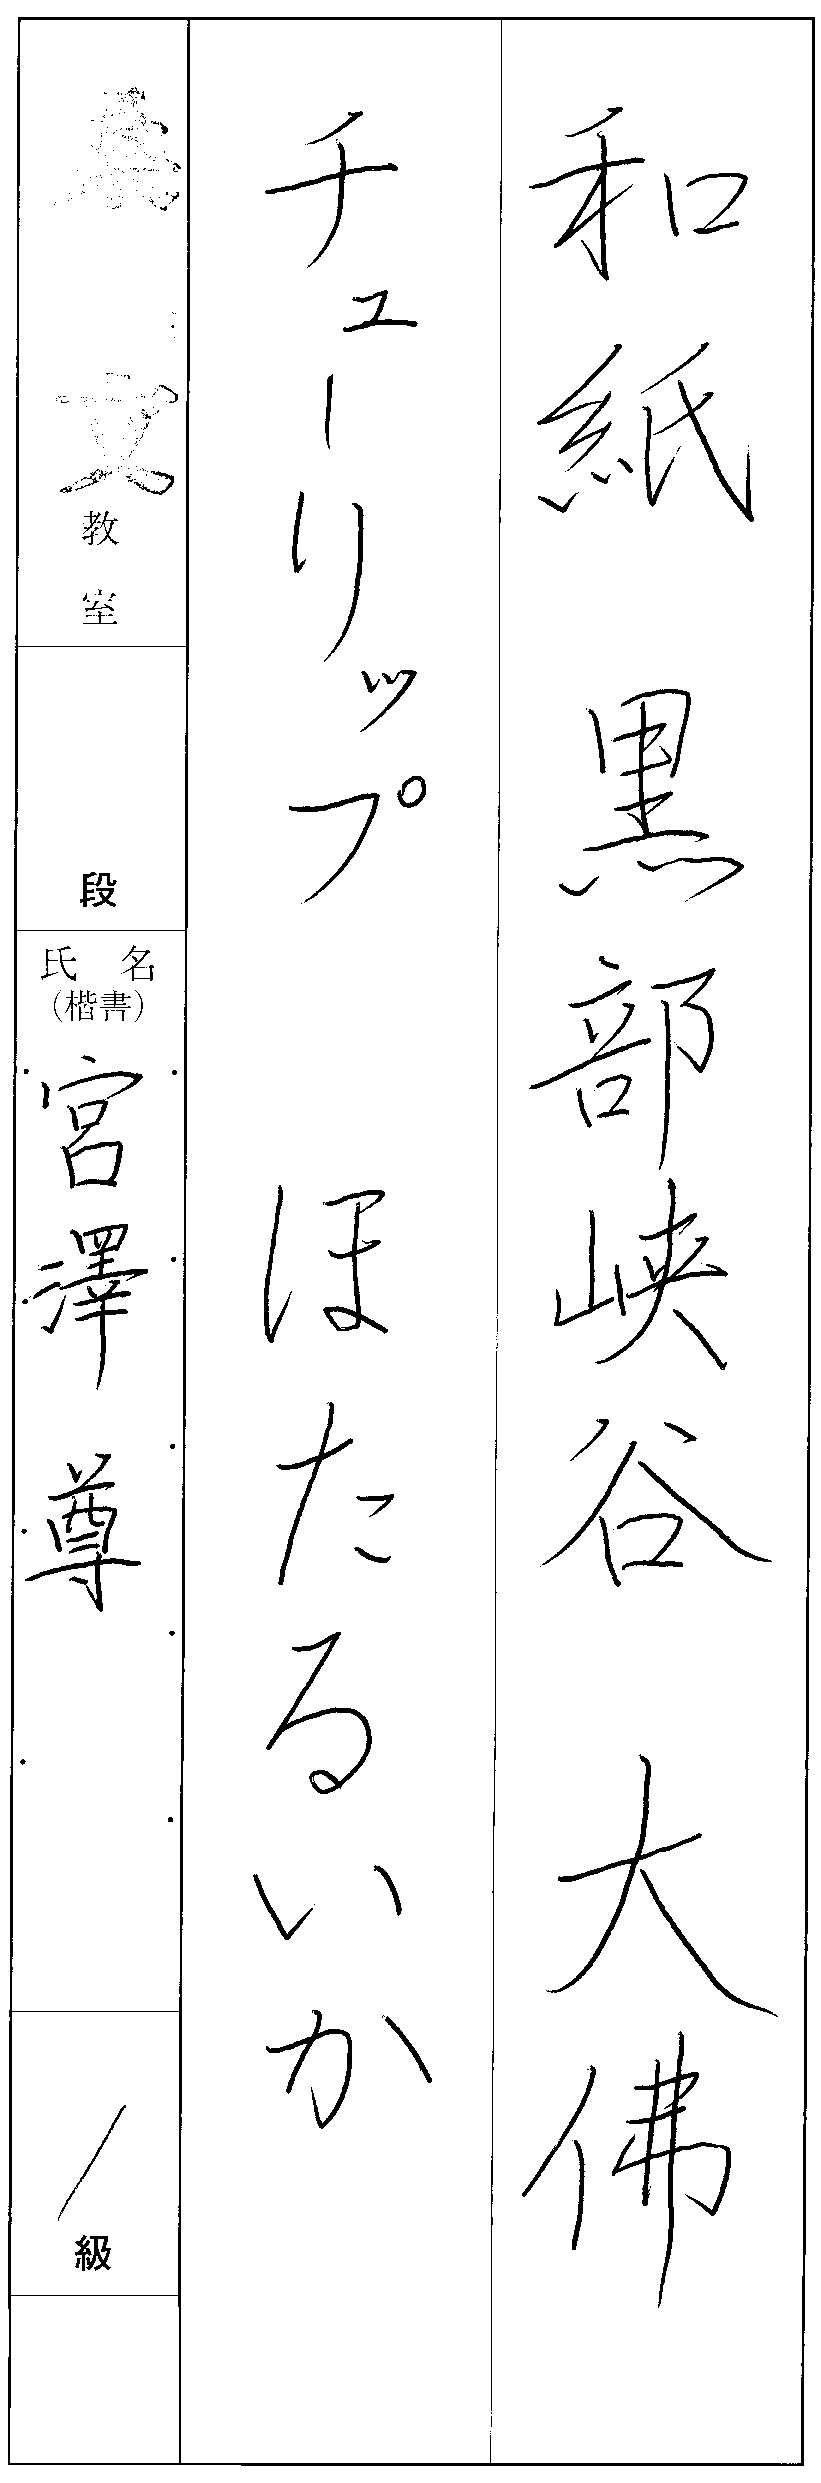 和紙 黒部峡谷 大佛
チューリップ ほたるいか
教室
段
氏名
(楷書)
宮澤尊
級